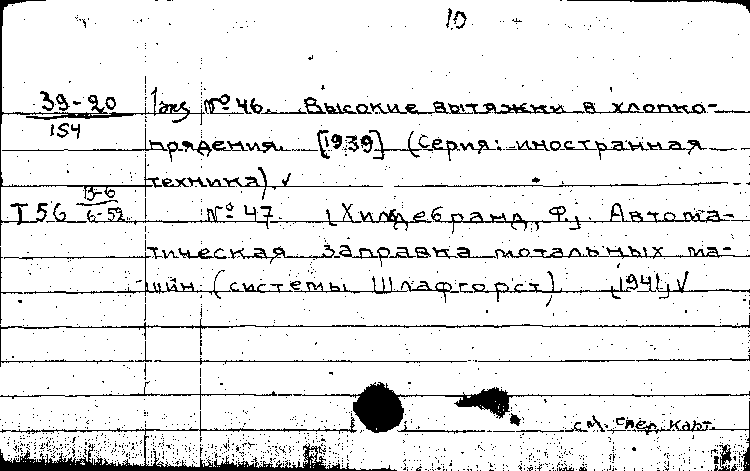 10
39-20 1 экз № 46. Высокие вытяжки в хлопко-
154
прядении. [1939] (Серия: иностранная
техника). ✓
13-6
Т 56 6-52. № 47. [Хильдебранд, Ф.] Автома-
тическая заправка мотальных ма-
шин (системы Шлафгорст) [1941] ✓
см. след. карт.